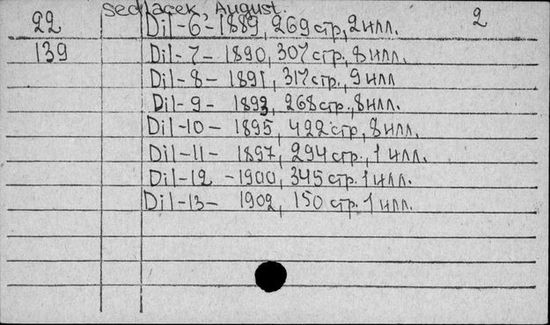 Sedláček, August.
22 Dil-6-1889, 269 стр, 2 илл. 2
139 Dil-7- 1890, 307 стр, 8 илл.
Dil-8- 1891, 317 стр, 9 илл
Dil-9- 1893, 268 стр., 8 илл.
Dil-10- 1895, 422 стр, 8 илл.
Dil-11- 1897, 294 стр., 1 илл.
Dil-12 -1900, 345 стр. 1 илл.
Dil-13- 1902, 150 стр. 1 илл.